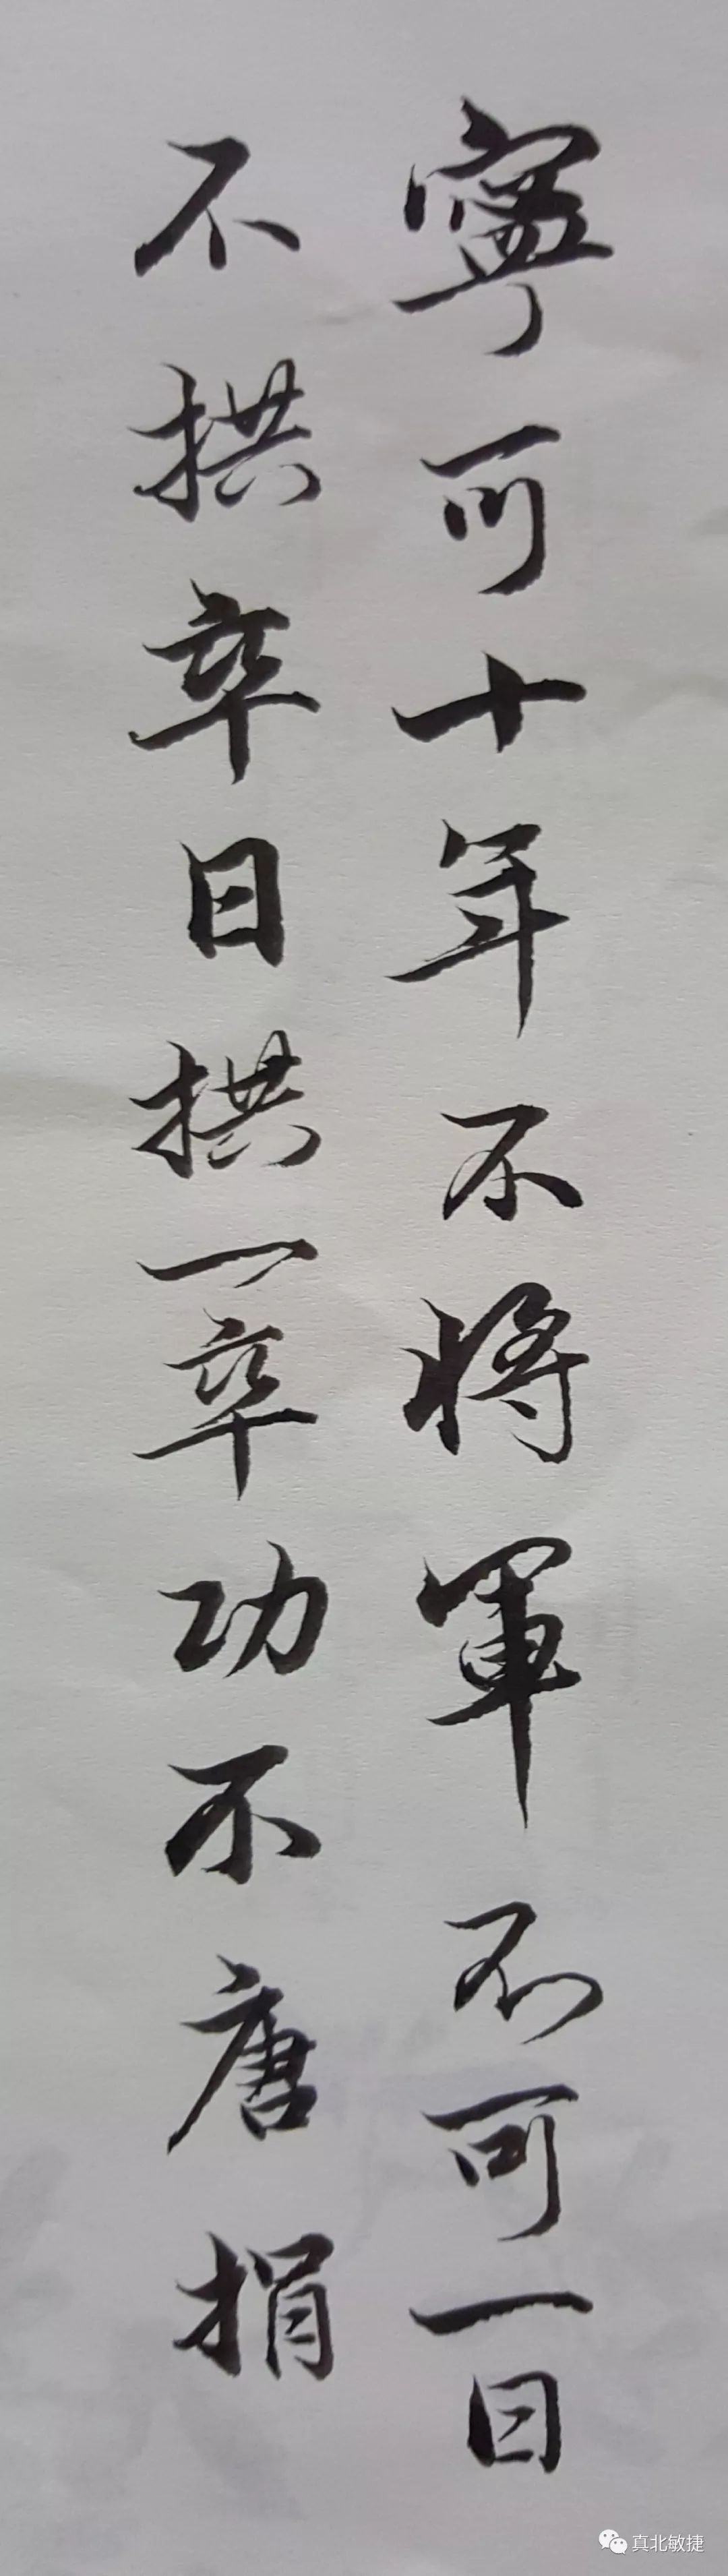 寧可十年不將軍不可一日
不拱卒日拱一卒功不唐捐
真北敏捷